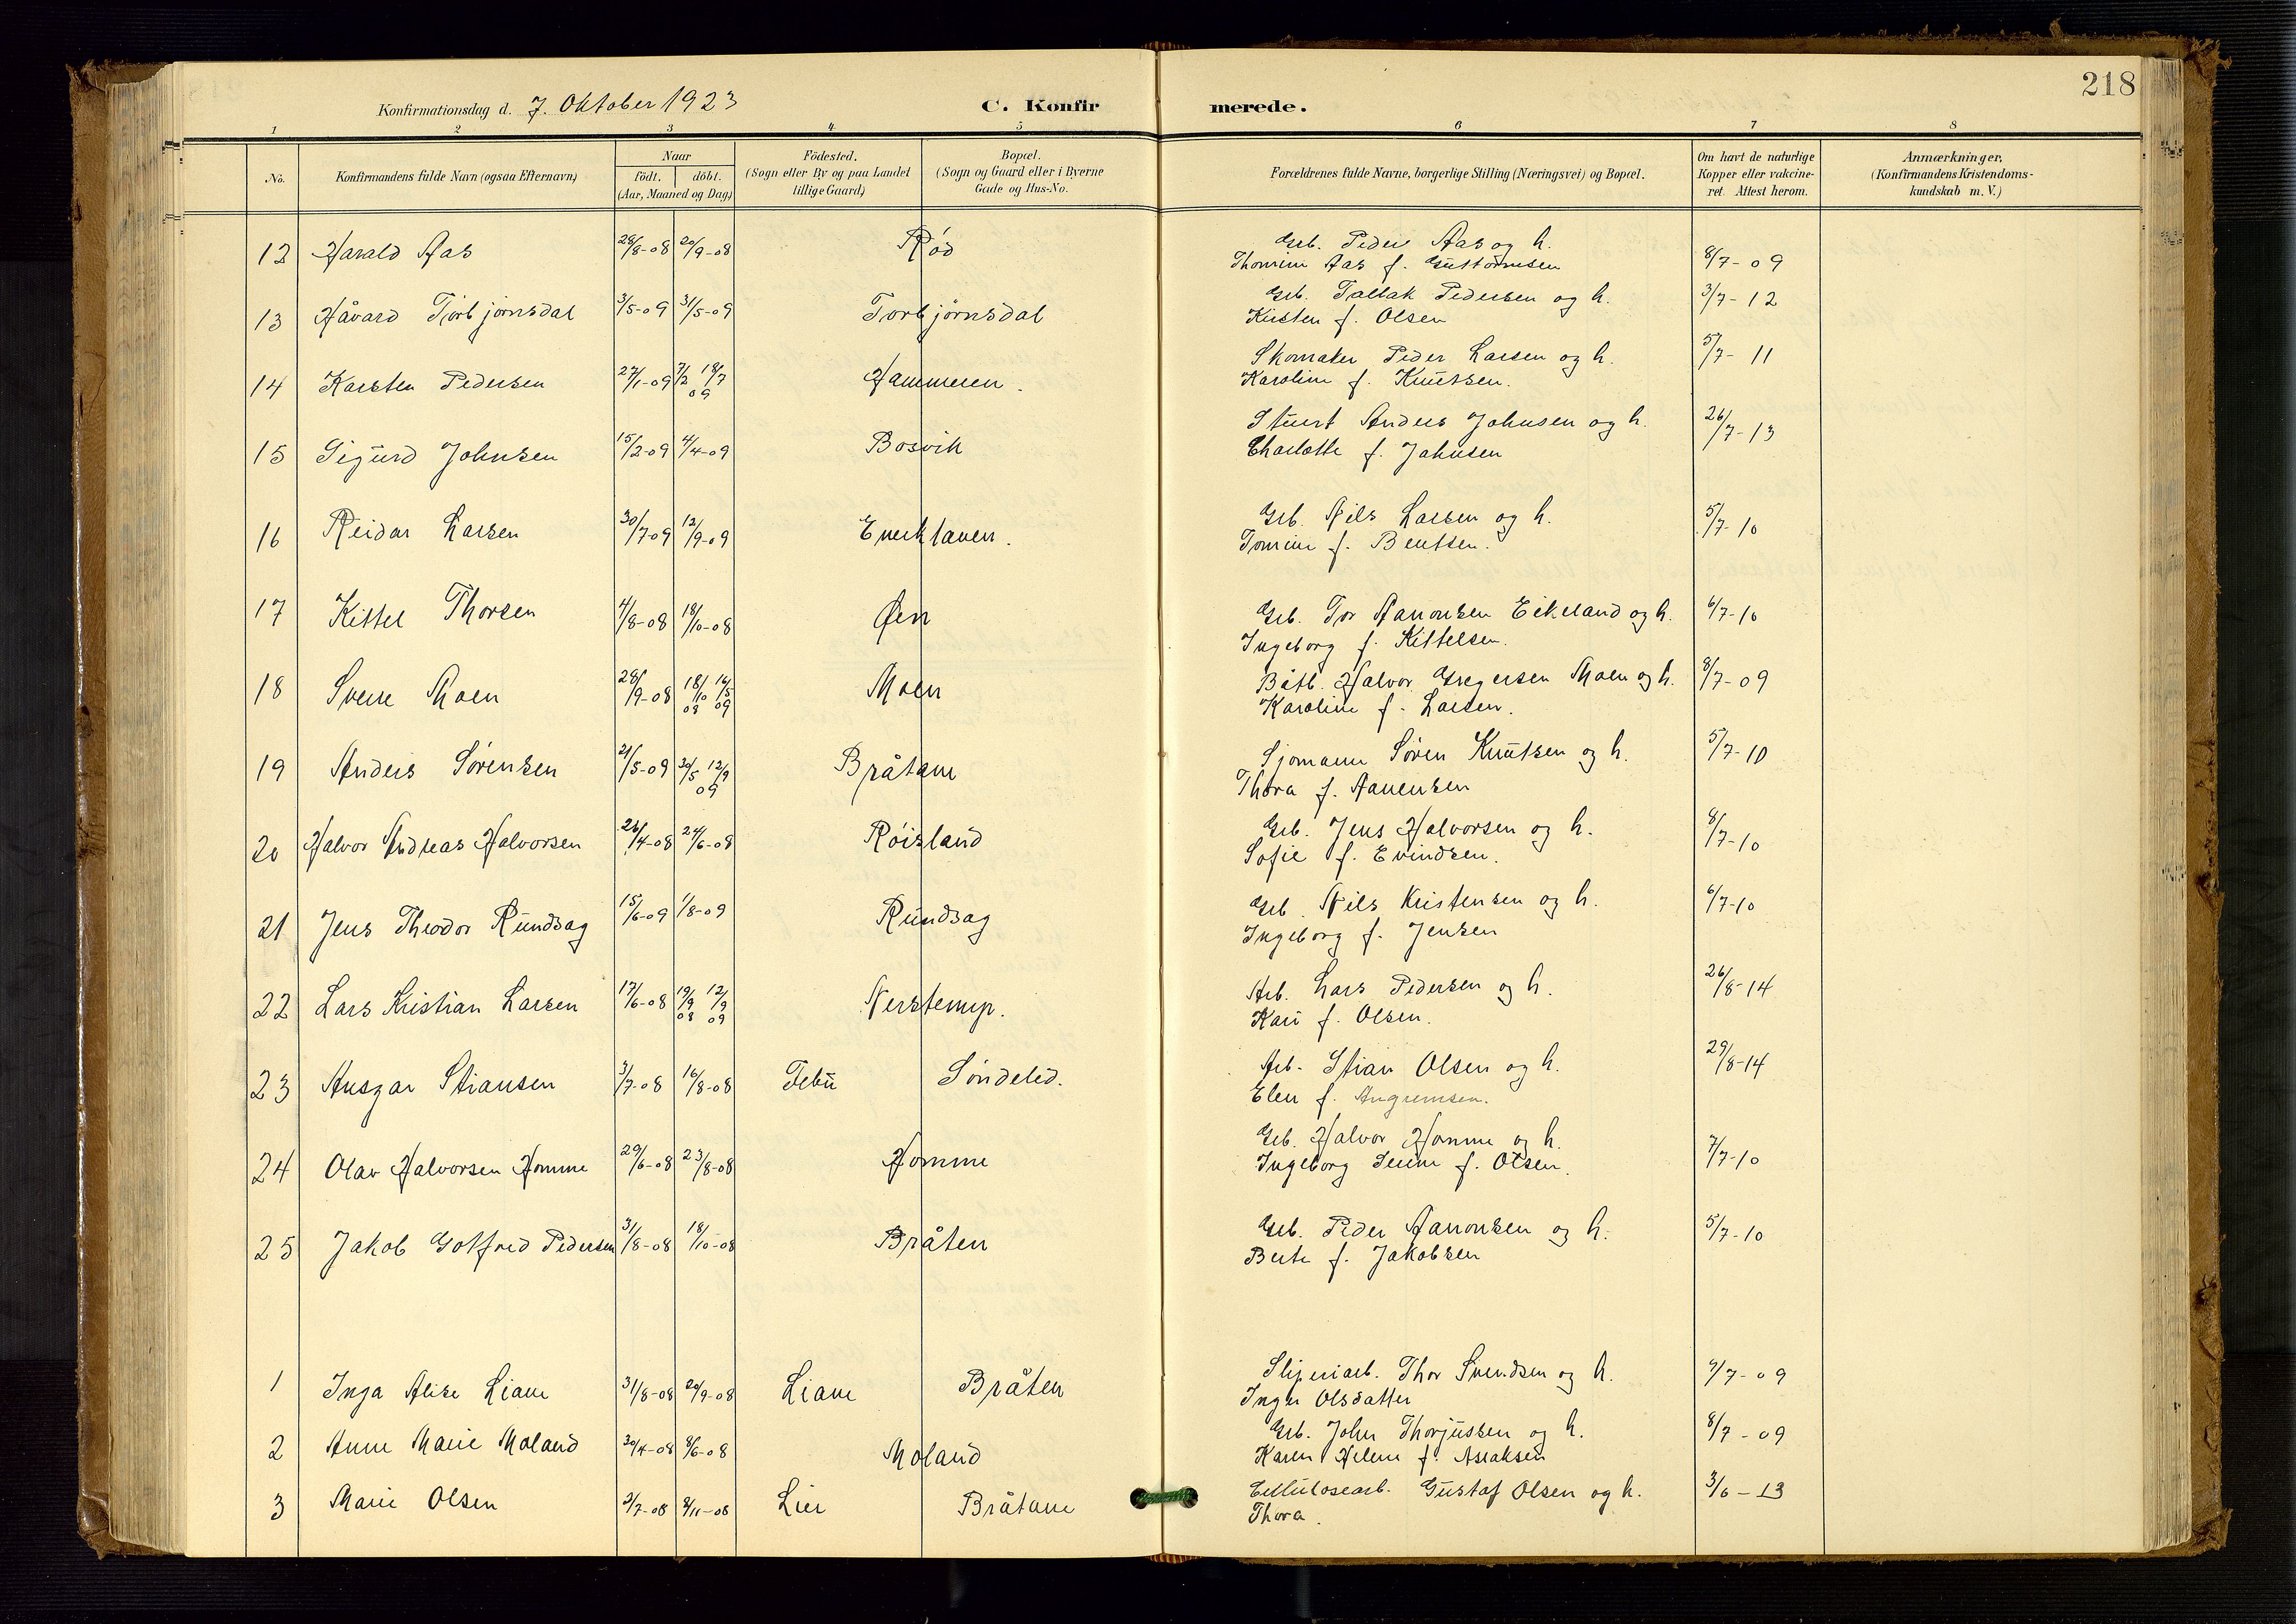 218
Konfirmationsdag d. 7. Oktober 1923 C. Konfirmerede.
1 2 3 4 5 6 7 8
No. Konfirmandens fulde Navn (ogsaa Efternavn) Naar født. døbt. (Aar, Maaned og Dag) Fødested. (Sogn eller By og paa Landet tillige Gaard) Bopæl. (Sogn og Gaard eller i Byerne Gade og Hus-No. Forældrenes fulde Navne, borgerlige Stilling (Næringsvei) og Bopæl. Om havt de naturlige Kopper eller vakcineret. Attest herom. Anmærkninger, (Konfirmandens Kristendomskundskab m. V.)
12 Harald Aas 28/8-08 20/9-08 Rød Grb. Peder Aas og h. 8/7-09
Thomine Aas f. Guttormsen
13 Håvard Torbjørnsdal 3/5-09 31/5-09 Torbjørnsdal Grb. Tallak Pedersen og h. 3/7-12
Kirsten f. Olsen
14 Karsten Pedersen 27/1-09 7/2 18/7 09 Hammeren. Skomaker Peder Larsen og h. 5/7-11
Karoline f. Knutsen.
15 Sigurd Johnsen 15/2-09 4/4-09 Bosvik Stuert Anders Johnsen og h. 26/7-13
Charlotte f. Johnsen
16 Reidar Larsen 30/7-09 12/9-09 Enerhaven. Grb. Nils Larsen og h. 5/7-10
Tomine f. Bentsen.
17 Kittel Thorsen 4/8-08 18/10-08 Øen Grb. Tor Aanonsen Eikeland og h. 6/7-10
Ingeborg f. Kittelsen.
18 Sverre Moen 28/9-08 18/10 08 16/5 09 Moen Båtb. Halvor Gregersen Moen og h. 8/7-09
Karoline f. Larsen.
19 Anders Sørensen 21/5-09 30/5 12/9 09 Bråtane Sjømann Søren Knutsen og h. 5/7-10
Thora f. Aanensen
20 Halvor Andreas Halvorsen 26/4-08 24/6-08 Røisland Grb. Jens Halvorsen og h. 8/7-10
Sofie f. Evindsen.
21 Jens Theodor Rundsag 15/6-09 1/8-09 Rundsag Grb. Nils Kristensen og h. 6/7-10
Ingeborg f. Jensen
22 Lars Kristian Larsen 17/6-08 19/9 08 12/9 09 Nerstemp. Arb. Lars Pedersen og h. 26/8-14
Kari f. Olsen.
23 Ansgar Stiansen 3/7-08 16/8-08 Tebu Søndeled. Arb. Stian Olsen og h. 29/8-14
Elen f. Angremsen.
24 Olav Halvorsen Homme 29/6-08 23/8-08 Homme Grb. Halvor Homme og h. 7/7-10
Ingeborg f. Olsen.
25 Jakob Gotfred Pedersen 31/8-08 18/10-08 Bråten Grb. Peder Aanonsen og h. 5/7-10
Berte f. Jakobsen
1 Inga Alise Liane 31/8-08 20/9-08 Liane Bråten Sliperiarb. Thor Svendsen og h. 9/7-09
Inger Olsdatter
2 Anne Marie Moland 30/4-08 8/6-08 Moland Grb. John Thorjussen og h. 8/7-09
Karen Helene f. Aslaksen
3 Marie Olsen 2/7-08 8/11-08 Lier Bråtane Cellulosearb. Gustaf Olsen og h. 3/6-13
Thora.